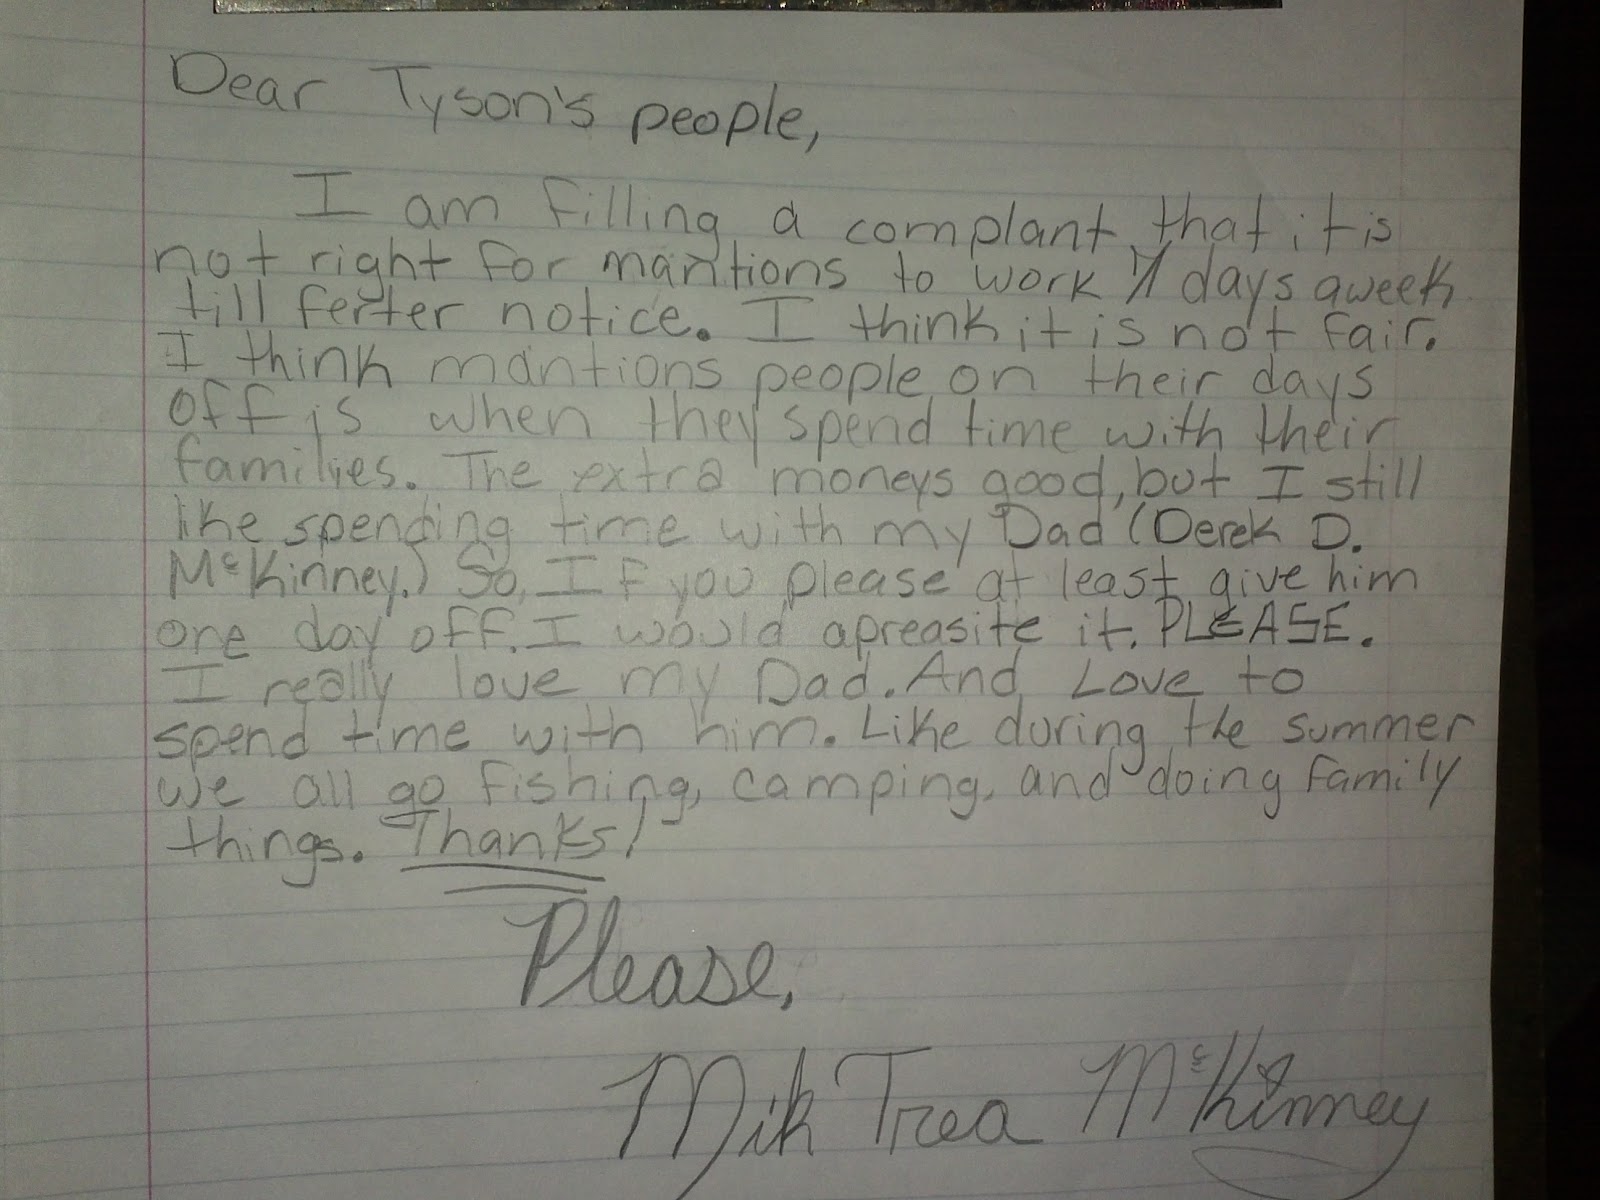 Dear Tyson's people,
I am filling a complant that it is
not right for mantions to work 7 days aweek
till ferter notice. I think it is not fair.
I think mantions people on their days
off is when they spend time with their
families. The extra moneys good, but I still
like spending time with my Dad (Derek D.
McKinney.) So, If you please at least give him
one day off. I would apreasite it. PLEASE.
I really love my Dad. And Love to
spend time with him. Like during the summer
we all go fishing, camping, and doing family
things. Thanks!
Please,
Mik Trea McKinney